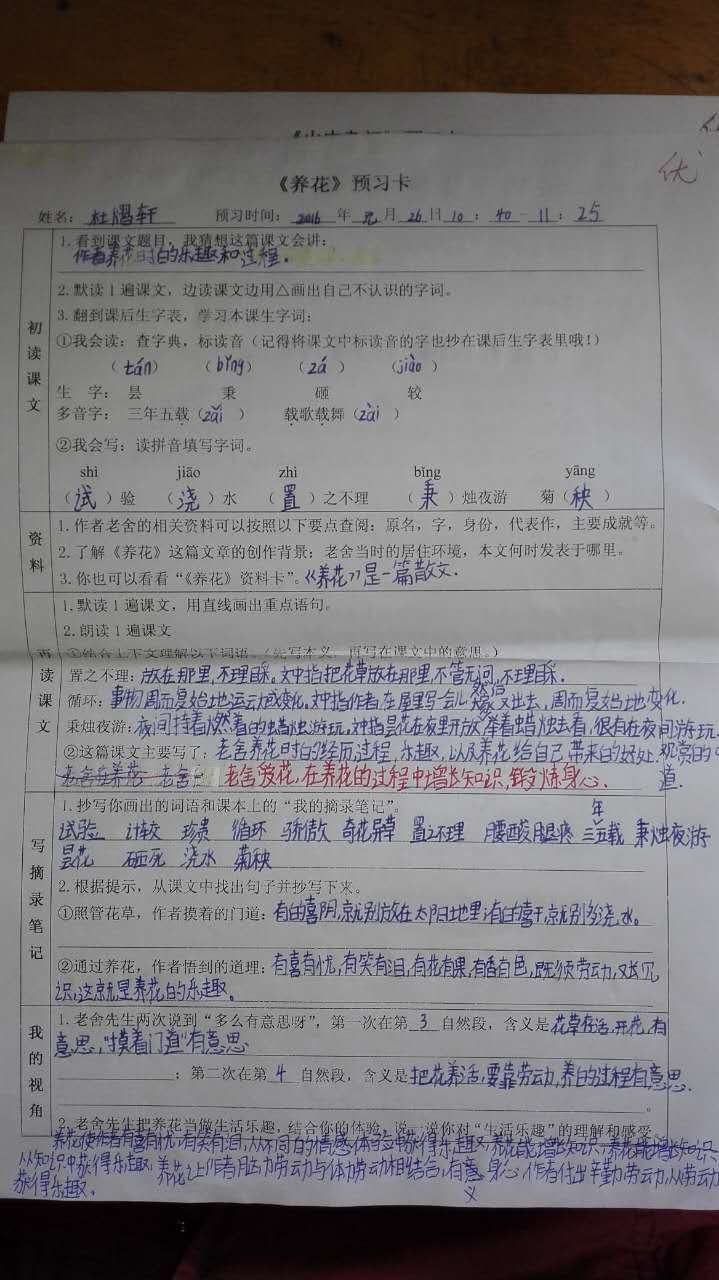 优
《养花》预习卡
姓名：杜熠轩 预习时间：2016 年 元 月 26 日 10 ：40 - 11：25
初读课文
1.看到课文题目，我猜想这篇课文会讲：
作者养花时的乐趣和过程.
2.默读1遍课文，边读课文边用△画出自己不认识的字词。
3.翻到课后生字表，学习本课生字词：
①我会读：查字典，标读音（记得将课文中标读音的字也抄在课后生字表里哦！）
（tán） （bǐng） （zá ） （jiào ）
生 字： 昙 秉 砸 较
多音字： 三年五载（zǎi ） 载歌载舞（zài ）
②我会写：读拼音填写字词。
shì jiāo zhì bǐng yāng
（试）验 （浇）水 （置）之不理 （秉）烛夜游 菊（秧）
资料
1.作者老舍的相关资料可以按照以下要点查阅：原名，字，身份，代表作，主要成就等。
2.了解《养花》这篇文章的创作背景：老舍当时的居住环境，本文何时发表于哪里。
3.你也可以看看“《养花》资料卡”。《养花》是一篇散文.
再读课文
1.默读1遍课文，用直线画出重点语句。
2.朗读1遍课文
①结合上下文理解以下词语。（先写本义，再写在课文中的意思。）
置之不理：放在那里,不理睬。文中指把花草放在那里,不管无问,不理睬.
循环：事物周而复始地运动或变化.文中指作者在屋里写会儿 然后 又出去，周而复始地变化.
秉烛夜游：夜间持着燃着的蜡烛游玩。文中指昙花在夜里开放,举着蜡烛去看，很有在夜间游玩、
②这篇课文主要写了：老舍养花时的经历过程，乐趣，以及养花给自己带来的好处. 观赏的味
老舍爱花，在养花的过程中增长知识，锻炼身心. 道.
写摘录笔记
1.抄写你画出的词语和课本上的“我的摘录笔记”。
年
试验 计较 珍贵 循环 骄傲 奇花异草 置之不理 腰酸腿疼 三五载 秉烛夜游
昙花 砸死 浇水 菊秧
2.根据提示，从课文中找出句子并抄写下来。
①照管花草，作者摸着的门道：有的喜阴,就别放在太阳地里;有的喜干,就别多浇水。
②通过养花，作者悟到的道理：有喜有忧,有笑有泪,有花有果,有香有色,既须劳动,又长见
识,这就是养花的乐趣。
我的视角
1.老舍先生两次说到“多么有意思呀”，第一次在第 3 自然段，含义是花草存活,开花,有
意思,“摸着门道”有意思
；第二次在第 4 自然段，含义是把花养活,要靠劳动,养的过程有意思.
。
2.老舍先生把养花当做生活乐趣，结合你的体验，说一说你对“生活乐趣”的理解和感受
养花使作者有喜有忧,有笑有泪,从不同的情感体验中获得乐趣;养花能增长知识,养花能增长知识,
从知识中获得乐趣；养花让作者脑力劳动与体力劳动相结合,有意身心.作者付出辛勤劳动,从劳动
义
获得乐趣.